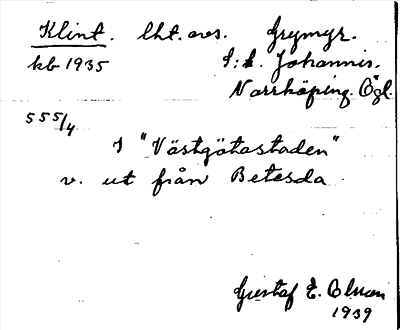 Klint. lht. avs. Grymyr.
kb 1935 S:t Johannis.
Norrköping. Ögl.
555/4
I "Västgötastaden"
v. ut från Betesda
Gustaf E. Olsson
1939